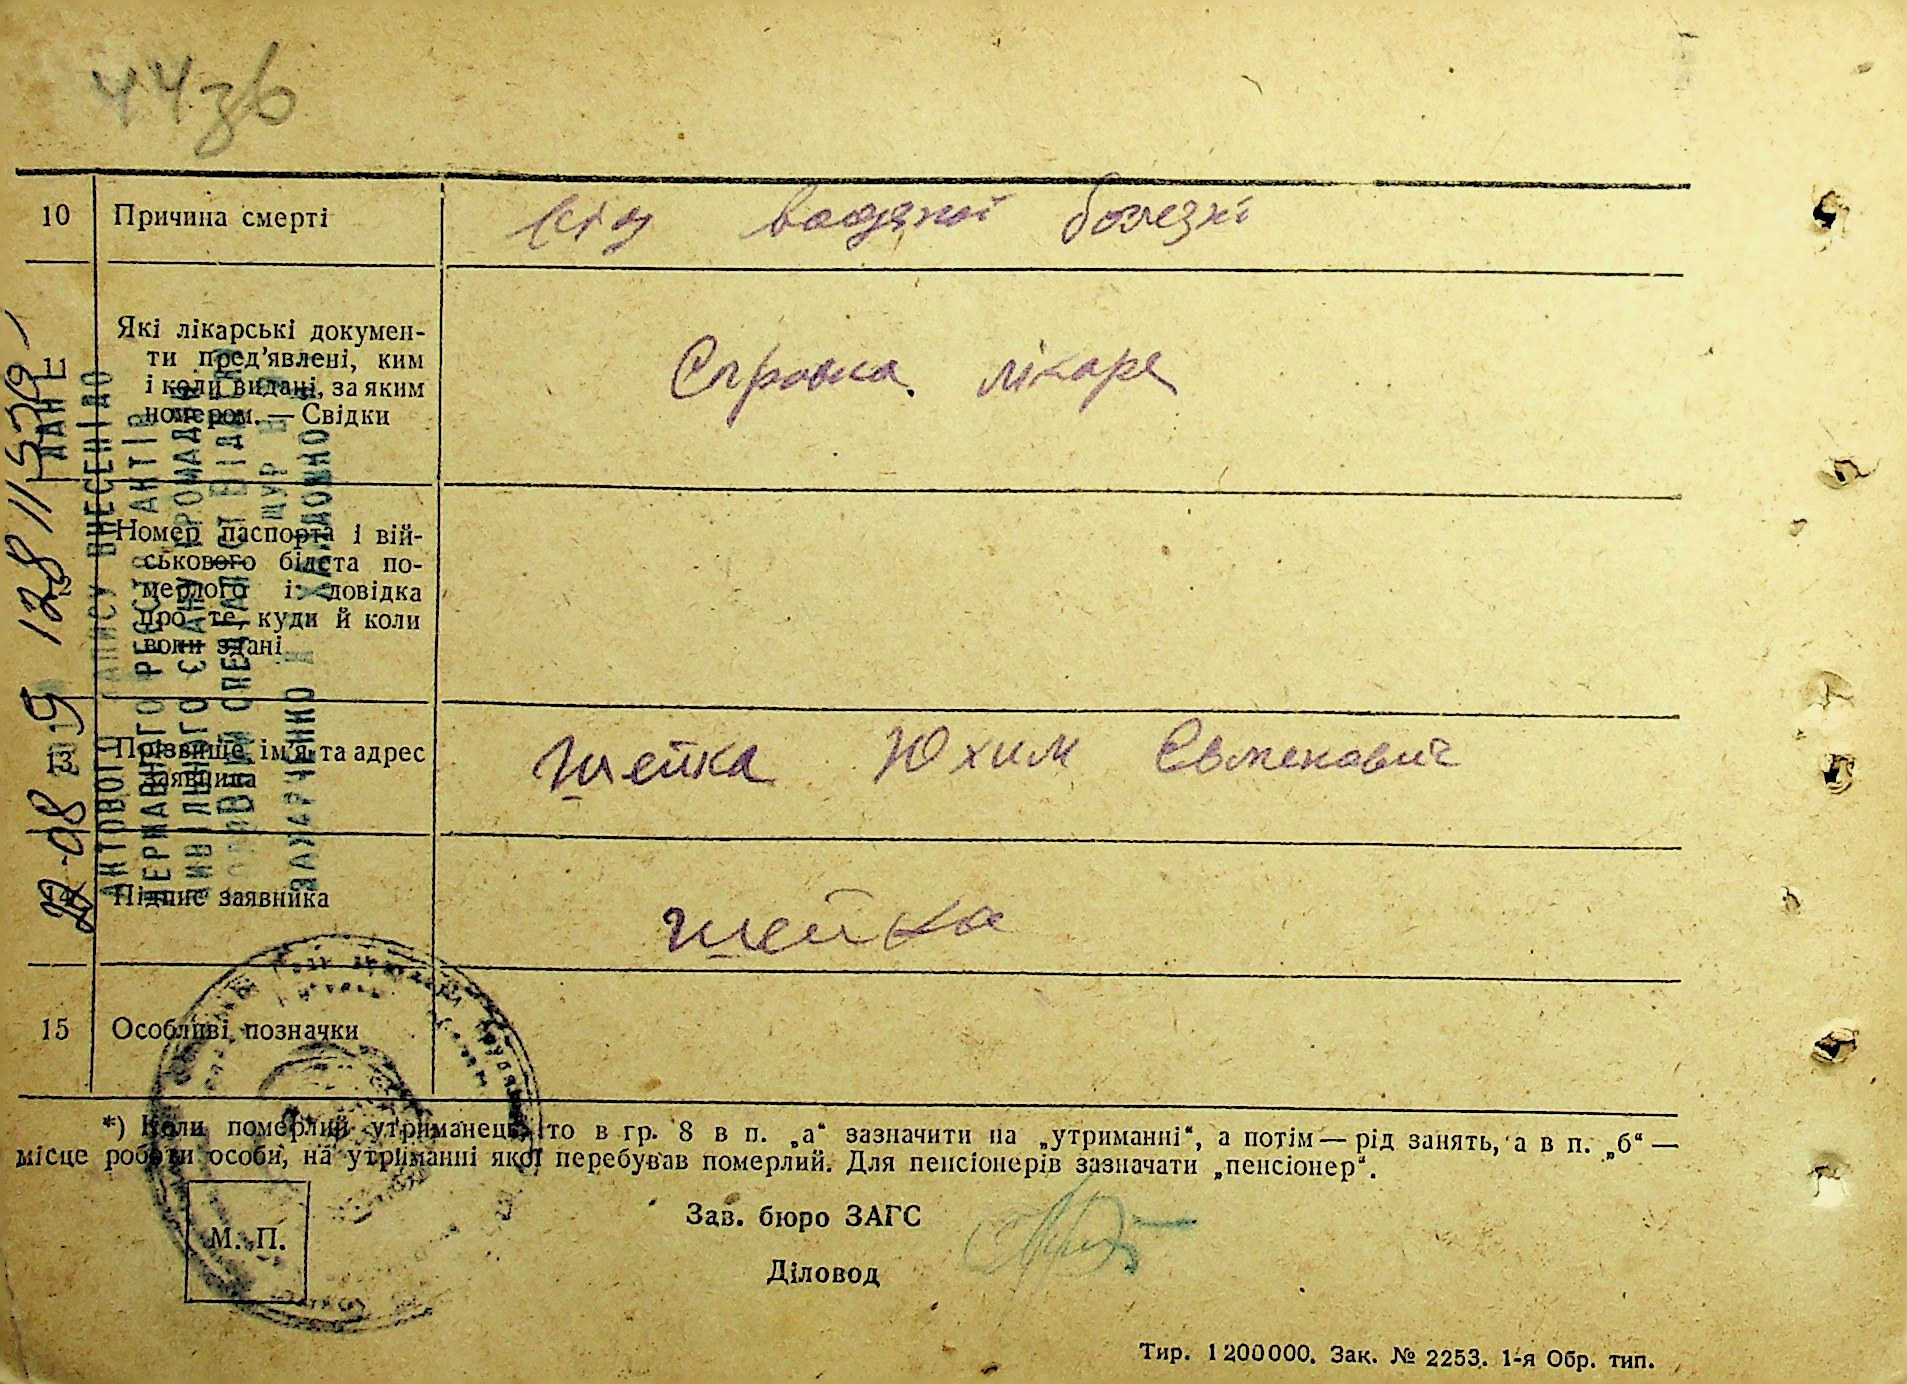 44зв
10 Причина смерті Від водяної болезні
11 Які лікарські докумен-
ти пред'явлені, ким
і коли видані, за яким
номером. — Свідки
Справка лікаря
Номер паспорта і вій-
ськового білета по-
мерлого і довідка
про те, куди й коли
вони здані
13 Прізвище, ім'я та адрес
заявника
Шейка Юхим Євменович
14 Підпис заявника Шейка
15 Особливі позначки
*) Коли померлий утриманець, то в гр. 8 в п. „а“ зазначити на „утриманні“, а потім — рід занять, а в п. „б“ —
місце роботи особи, на утриманні якої перебував померлий. Для пенсіонерів зазначати „пенсіонер“.
М. П.
Зав. бюро ЗАГС
Діловод
Тир. 1200000. Зак. № 2253. 1-я Обр. тип.
ДАНІ
АКТОВОГО ЗАПИСУ ВНЕСЕНІ ДО
ДЕРЖАВНОГО РЕЄСТРУ АКТІВ
ЦИВІЛЬНОГО СТАНУ ГРОМАДЯН